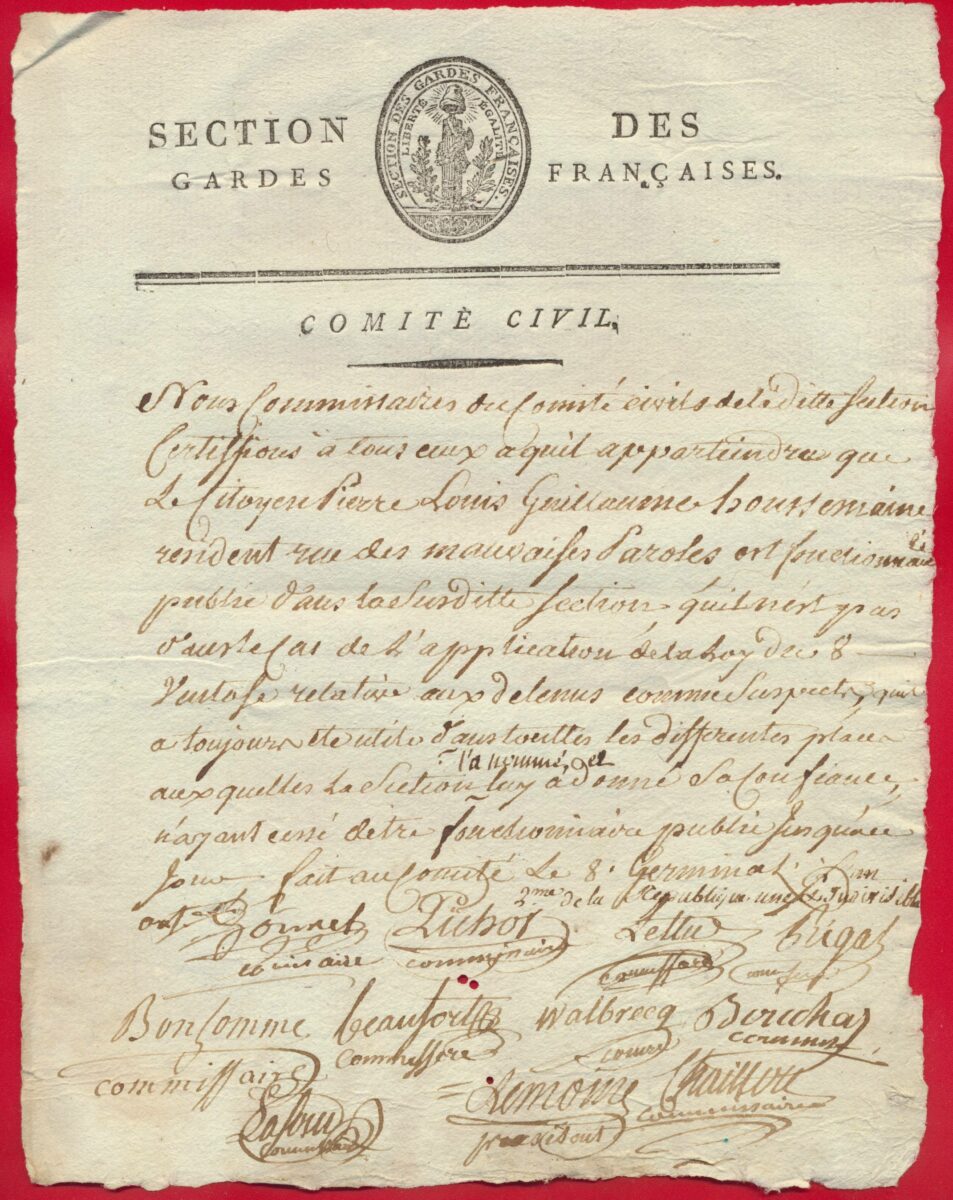 SECTION DES
GARDES FRANÇAISES.
SECTION DES GARDES FRANÇAISES.
LIBERTÉ ÉGALITÉ
COMITÈ CIVIL.
Nous Commissaires du Comité civils de la ditte Section
Certiffions à tous ceux à quil appartiendra que
Le Citoyen Pierre Louis Guillaume houssemaine
rue des mauvaises Paroles est fonctionnaire
public d'ans la Susditte Section quil n'est pas
d'ans le Cas de L'application de la Loy du 8
Ventose relative aux detenus comme Suspects, quil
a toujours été utile d'ans touttes les differentes places
l'a nommé, et
aux quelles La Section luy à donné Sa Confiance,
n'ayant cessé d'etre fonctionnaire public Jusqu'à ce
Jour fait au Comité Le 8. Germinal l'an
2.me de la Republique une et Indivisible
Bonnet Pichot
commissaire commissaire
Rigal
Bonhomme beaufort Walbrecq
commissaire commissaire
Lemoine
president commissaire
commissaire